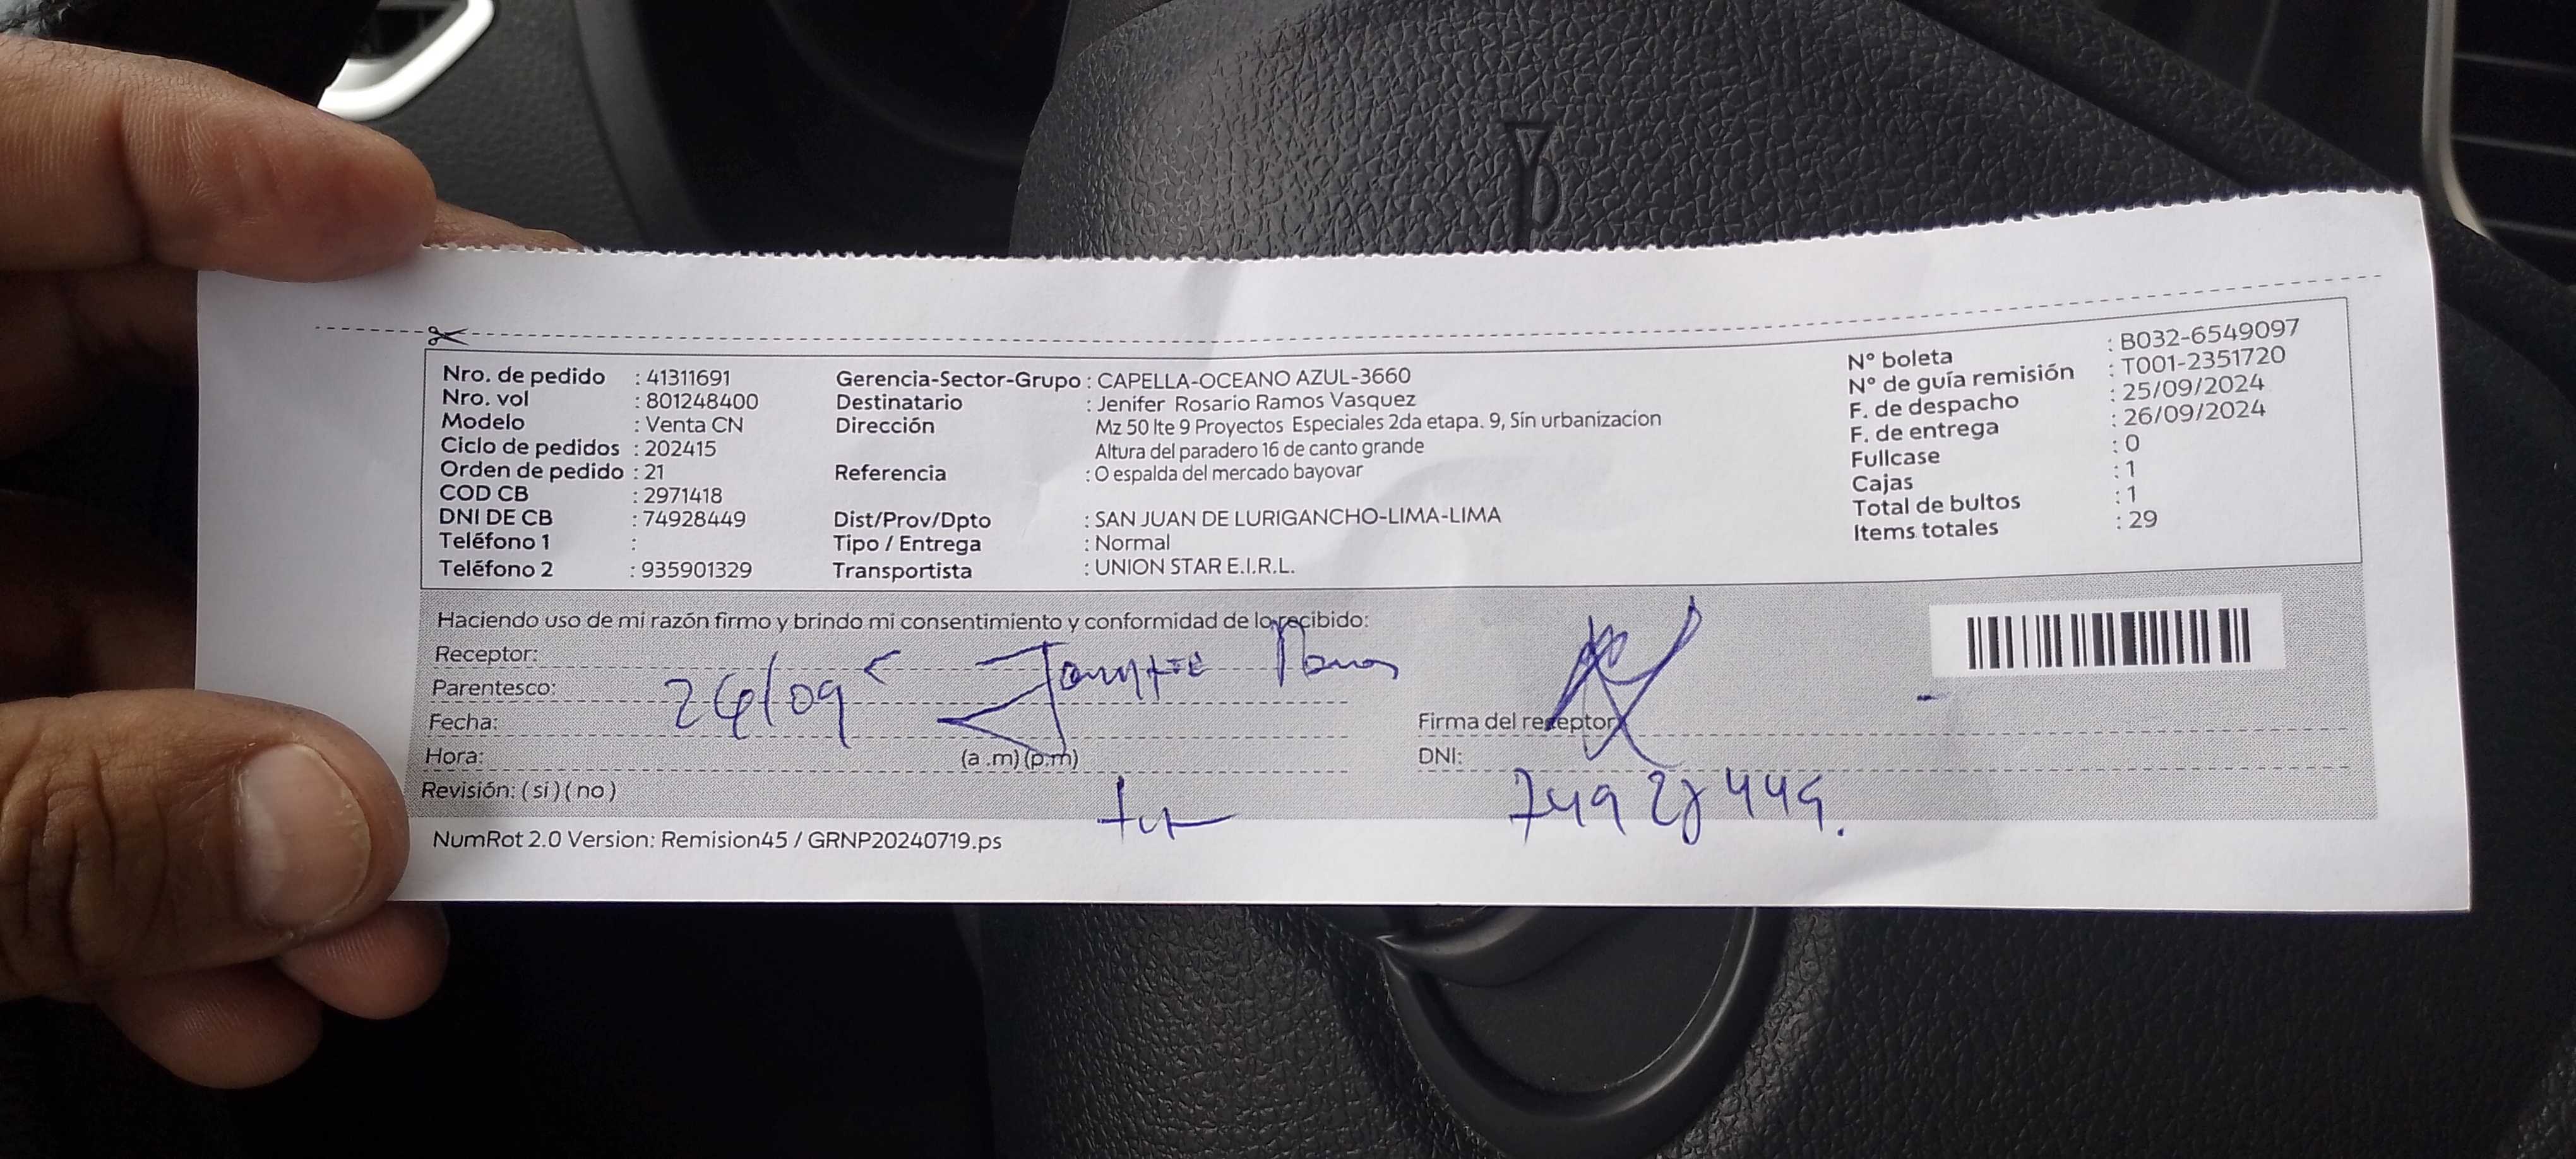 Nro. de pedido : 41311691
Nro. vol : 801248400
Modelo : Venta CN
Ciclo de pedidos : 202415
Orden de pedido : 21
COD CB : 2971418
DNI DE CB : 74928449
Teléfono 1 :
Teléfono 2 : 935901329
Gerencia-Sector-Grupo : CAPELLA-OCEANO AZUL-3660
Destinatario : Jenifer Rosario Ramos Vasquez
Dirección Mz 50 lte 9 Proyectos Especiales 2da etapa. 9, Sin urbanizacion
Altura del paradero 16 de canto grande
Referencia : O espalda del mercado bayovar
Dist/Prov/Dpto : SAN JUAN DE LURIGANCHO-LIMA-LIMA
Tipo / Entrega : Normal
Transportista : UNION STAR E.I.R.L.
N° boleta : B032-6549097
N° de guía remisión : T001-2351720
F. de despacho : 25/09/2024
F. de entrega : 26/09/2024
Fullcase : 0
Cajas : 1
Total de bultos : 1
Items totales : 29
Haciendo uso de mi razón firmo y brindo mi consentimiento y conformidad de lo recibido:
Receptor:
Parentesco:
Fecha: 26/09
Hora: (a .m) (p.m)
Revisión: ( si ) ( no )
Firma del receptor
DNI: 74928449.
NumRot 2.0 Version: Remision45 / GRNP20240719.ps